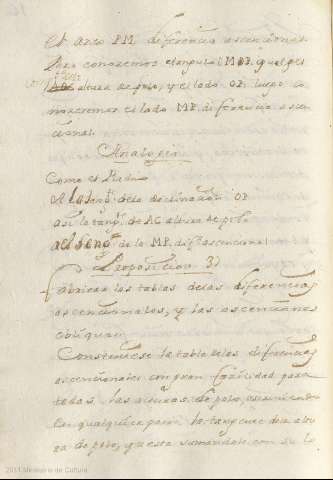 el arco PM diferencia ascencional
pero conocemos el angulo MOP, igual a la
altura de polo, y el lado OP luego co
noceremos el lado MP diferencia ascen
cional.
Analogia
Como el Radio
A la tang.te de la declinacion OP
asi la tang.te de AC altura de polo
al seno de la MP, dif.a ascencional
Proposicion 3
Fabricar las tablas de las diferencias
ascencionales, y las ascenciones
obliquas
Construese la tabla de las diferencias
ascencionales con gran facilidad para
todas las alturas de polo,
la tangente de la altu
ra de polo, que esta sumandole con su lo
2011 Ministerio de Cultura